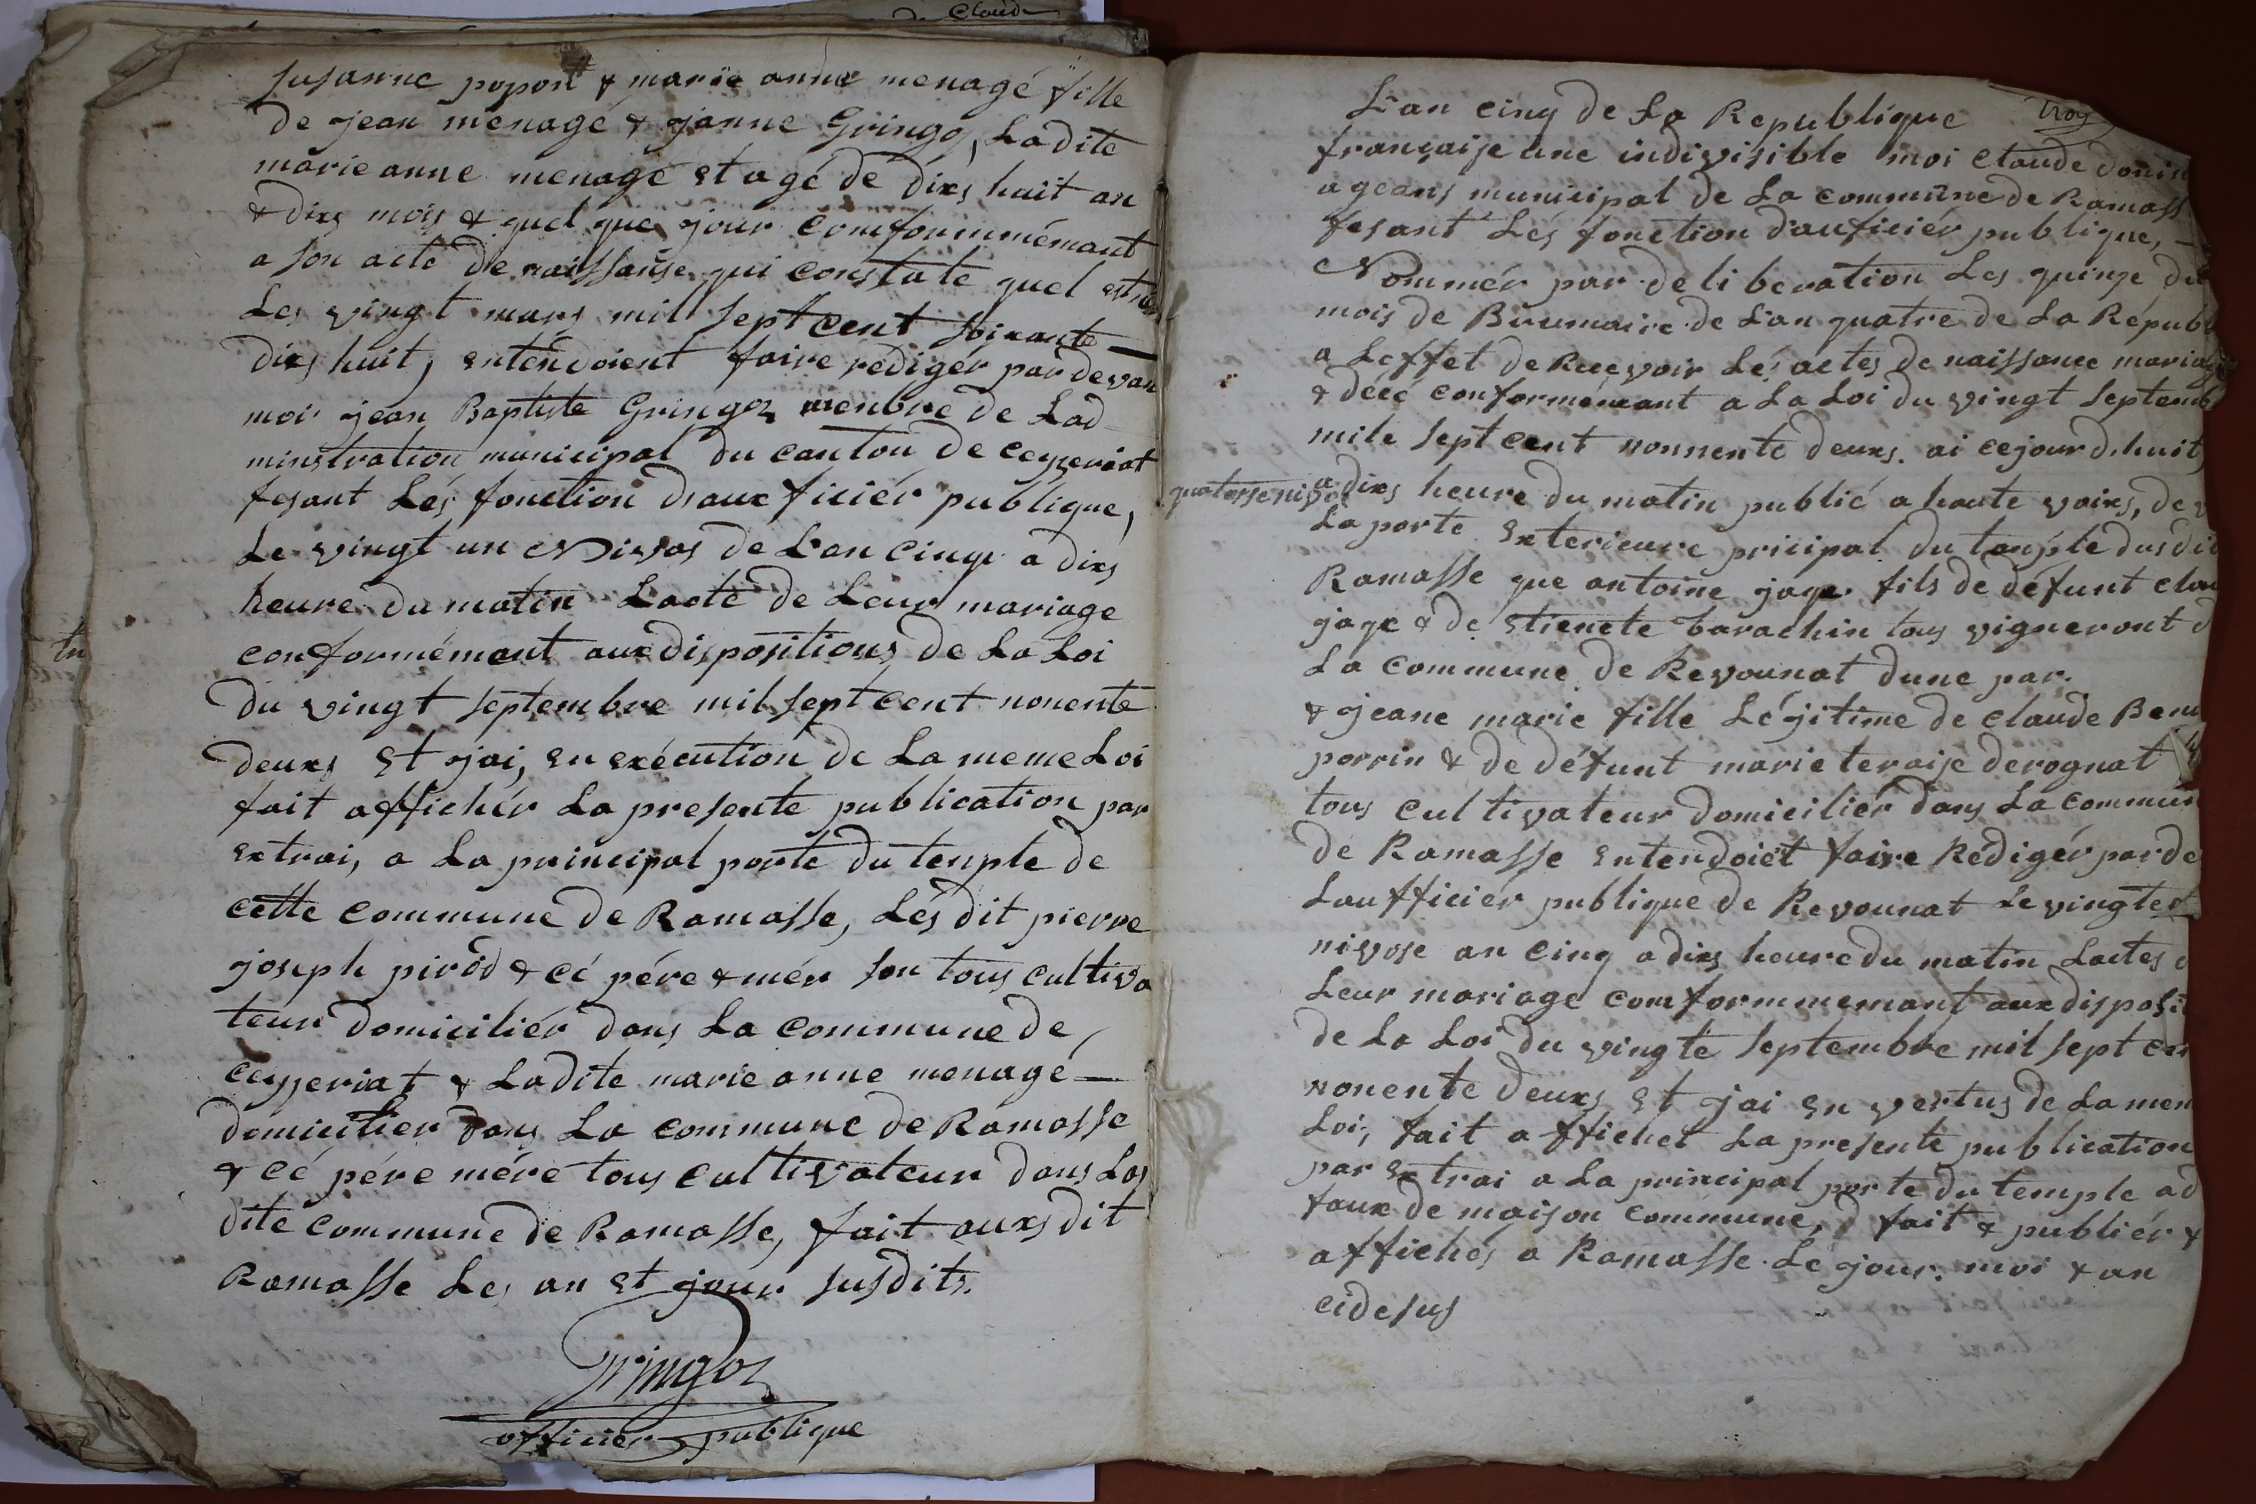 de Claude
susanne popon & marie anne menagé fille
de jean menagé & janne Gringoz, Ladite
marie anne menagé et agé de dixs huit an
& dixs mois & quel que jour comformmémant
a son acte de naissansse qui constate quel est née
Les vingt mars mil sept cent soixante
dixs huit, entendoient faire redigér par devan
moi jean Baptiste Gringoz menbre de Lad
minstration municipal du canton de ceyzeriat
fesant Lés fonction d'auxficiér publique,
Le vingt un Nivos de L'an cinq a dixs
heure du matin Lacte de Leur mariage
conformémant aux dispositions de La Loi
du vingt septembre mil sept cent nonente
deuxs et jai, en exécution de La meme Loi
fait affichér La presente publication par
extrai, a La principal porte du temple de
cette commune de Ramasse, Lés dit pierre
joseph piròd & cé pére & mér son tous cultiva
teur domiciliér dans La commune de
ceyzeriat & Ladite marie anne menagé
domicilier dans La commune de Ramasse
& cé pére mére tous cultivateur dans Las
dite commune de Ramasse, fait auxsdit
Ramasse Les an et jour susdits.
Gringoz
officier publique
troy
L'an cinq de La Republique
française une indivisible moi claude donin
ageans municipal de La commune de Ramass
fesant Lés fonction d'auficiér publique,
Nommér par deliberation Les quinze du
mois de Brumaire de L'an quatre de La Républ
a Leffet de Recevoir Lés actes de naissance mariag
& décé conformémant a La Loi du vingt septemb
mile sept cent nonnente deuxs. ai cejourdhuit
quatorse nivos
a dixs heure du matin publié a haute voixs, de v
La porte exterieure pricipal du tanple dusdit
Ramasse que antoine jage fils de défunt clau
jage & de etienete barachin tous vigneront d
La commune de Revounat dune par.
& jeane marie fille Légitime de claude Benu
perrin & de défunt marie teraise derognat
tous cultivateur domiciliér dans La commun
de Ramasse entendoiet faire Rédigér par de
Laufficiér publique de Revounat Le vingtet
nivose an cinq a dixs heure du matin Lactes d
Leur mariage comformmemant aux disposit
de La Loi du vingte septembre mil sept cen
nonente deuxs et jai en vertus de La mem
Loi, fait affichet La presente publication
par extrai a La principal porte du temple ad
faux de maison commune, fait & publiér &
affichés a Ramasse Lé jour. moi & an
cidesus